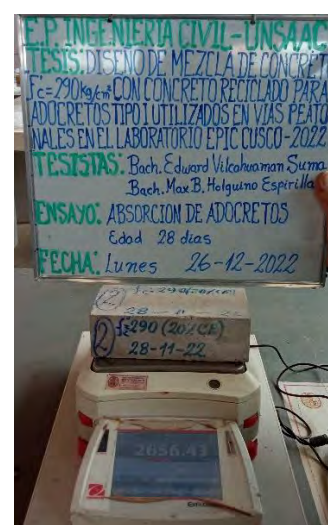 E.P. INGENIERIA CIVIL-UNSAAC
TESIS: DISEÑO DE MEZCLA DE CONCRET
f'c=290kg/cm² CON CONCRETO RECICLADO PARA
ADOCRETOS TIPO I UTILIZADOS EN VIAS PEATO
NALES EN EL LABORATORIO EPIC CUSCO-2022
TESISTAS: Bach. Edward Vilcahuaman Suma
Bach. Max B. Holguino Espirilla
ENSAYO: ABSORCION DE ADOCRETOS
Edad 28 dias
FECHA: Lunes 26-12-2022
(2) f'c 290
28-11-22
(2) f'c 290 (20% CE)
28-11-22
2656.43
OHAUS